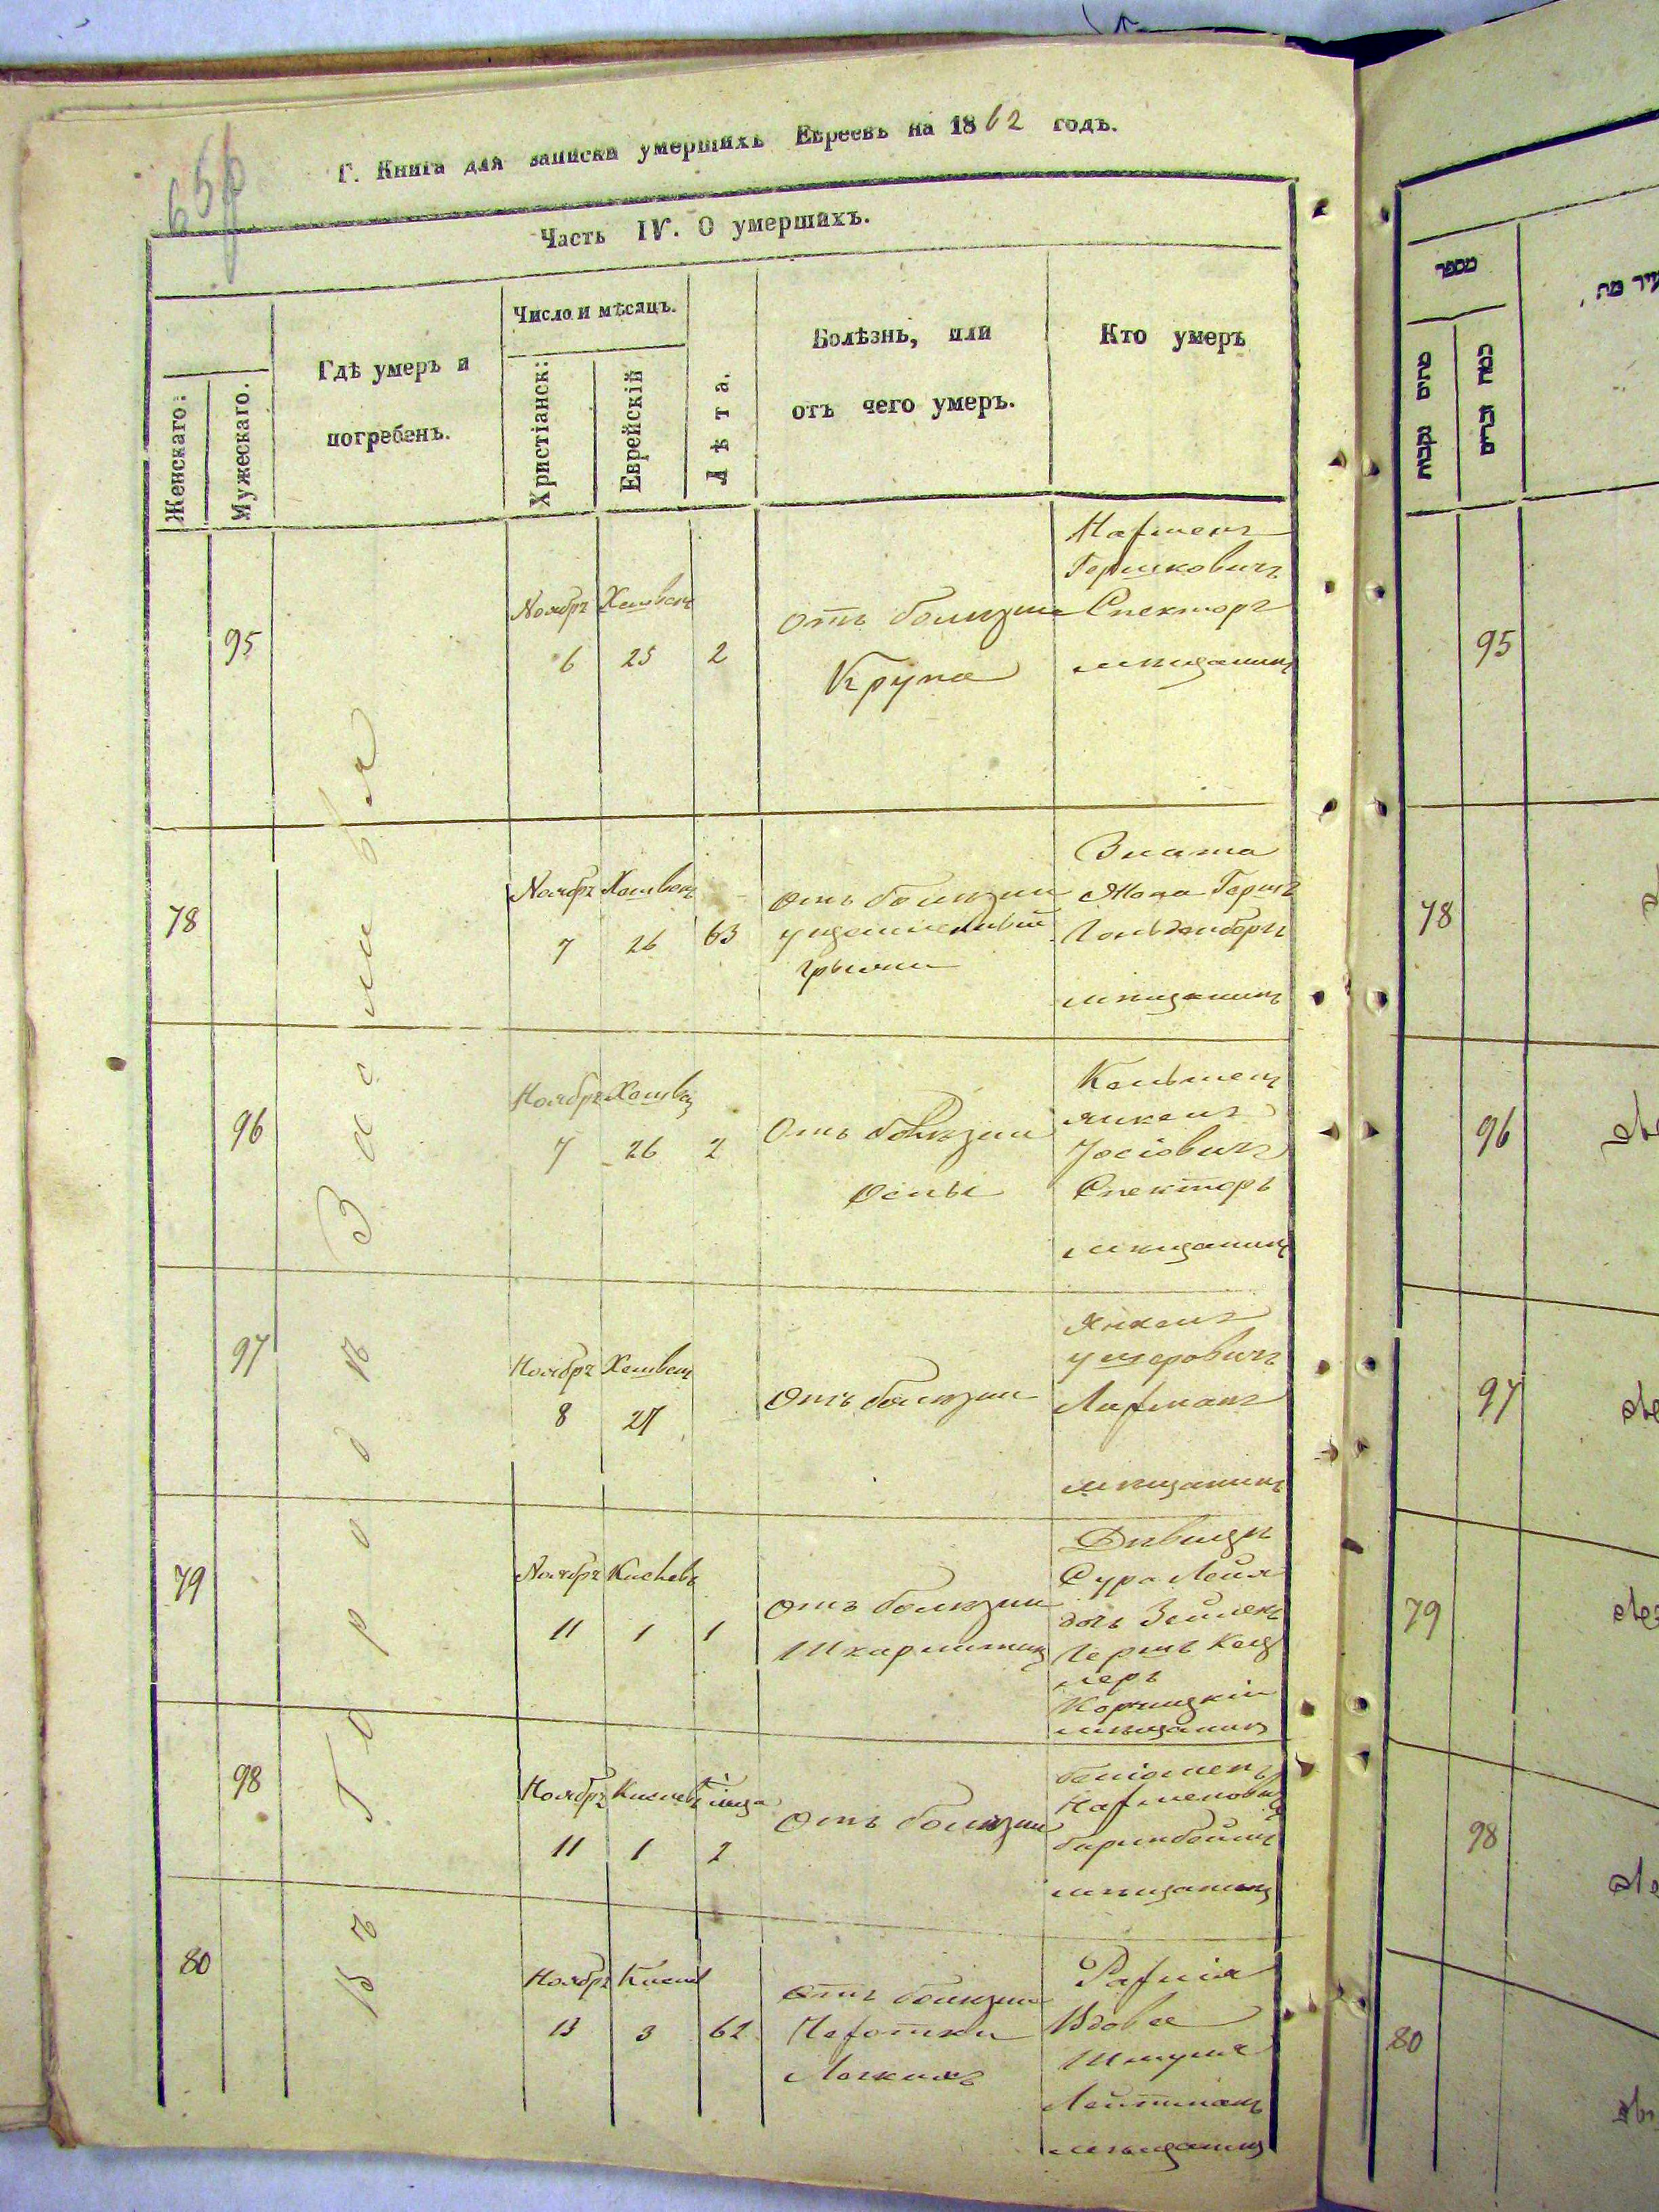 65р
Г. Книга для записки умершихъ Евреевъ на 1862 годъ.
Часть IV. О умершихъ.
Женскаго:
Мужескаго.
Гдѣ умеръ и
погребенъ.
Число и мѣсяцъ.
Христіанск:
Еврейскій
Лѣта.
Болѣзнь, или
отъ чего умеръ.
Кто умеръ
Въ Городѣ Заславѣ
95
Ноябрь
6
Хешвенъ
25
2
отъ болѣзни
Крупа
Нахменъ
Гершковичъ
Спекторъ
мѣщанинъ
78
Ноябрь
7
Хешвенъ
26
63
отъ болѣзни
грыжи
Злата
Жона Герша
Гольденберга
мѣщанинъ
96
Ноябрь
7
Хешвен
26
2
отъ болѣзни
оспы
Кельменъ
Янкель
Іосіовичъ
Спекторъ
мѣщанинъ
97
Ноябрь
8
Хешвенъ
27
отъ болѣзни
Янкель
Ушеровичъ
Лахманъ
мѣщанинъ
79
Ноябрь
11
Кислевъ
1
1
отъ болѣзни
Шкарлатины
Дѣвица
Сура Лейя
дочь
Гершъ
Корчицкій
мѣщанинъ
98
Ноябрь
11
Кислевъ
1
мѣсяца
2
отъ болѣзни
Беніоменъ
Нахменовичъ
мѣщанинъ
80
Ноябрь
13
Кислев
3
62
отъ болѣзни
Чахотки
Легкихъ
Рахиля
Вдова
Шмуля
мѣщанинъ
מספר
מתים נקבות
כמה זכרים
95
78
96
97
79
98
80